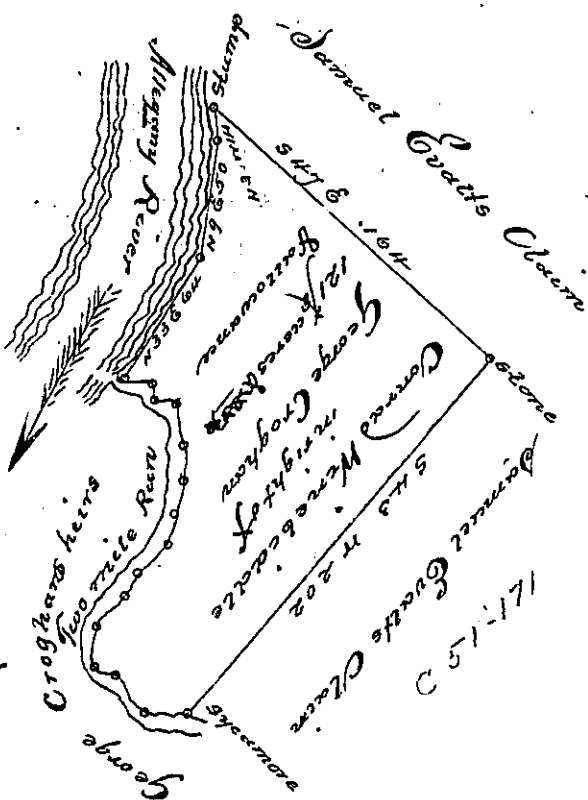 Samuel Evalts Claim
Stump
S 47 E 164
Allegany River
Stone
Conrad Winebiddle
in right of
George Croghan
121 Acres
allowance
S 43 W 202
Samuel Evalts Claim
C 51-171
Sycamore
Two mile Run
George Croghans heirs